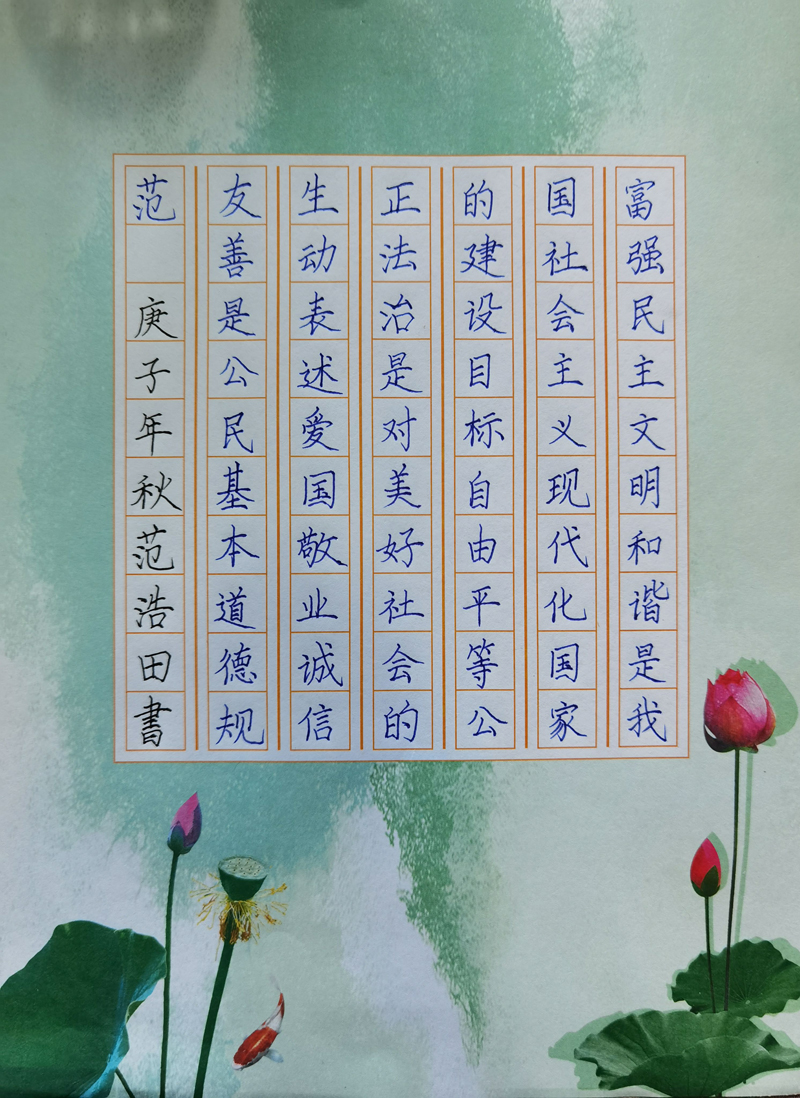 富强民主文明和谐是我
国社会主义现代化国家
的建设目标自由平等公
正法治是对美好社会的
生动表述爱国敬业诚信
友善是公民基本道德规
范 庚子年秋范浩田書